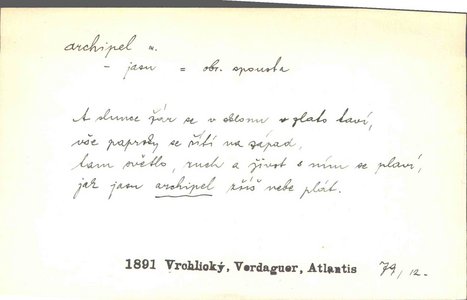 archipel m.
– jasu = obr. spousta
A slunce žár se v sklonu v zlato taví,
vše paprsky se řítí na západ,
tam světlo, ruch a život s ním se plaví,
jak jasu archipel v říš nebe plát.
1891 Vrchlický, Verdaguer, Atlantis 79, 12.